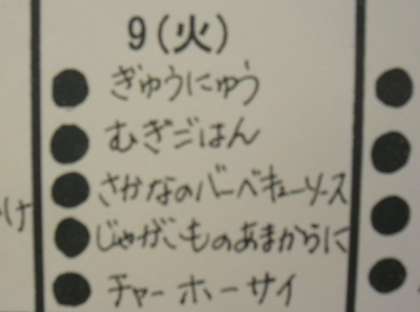 9(火)
ぎゅうにゅう
むぎごはん
さかなのバーベキューソース
じゃがいものあまからに
チャーホーサイ
け